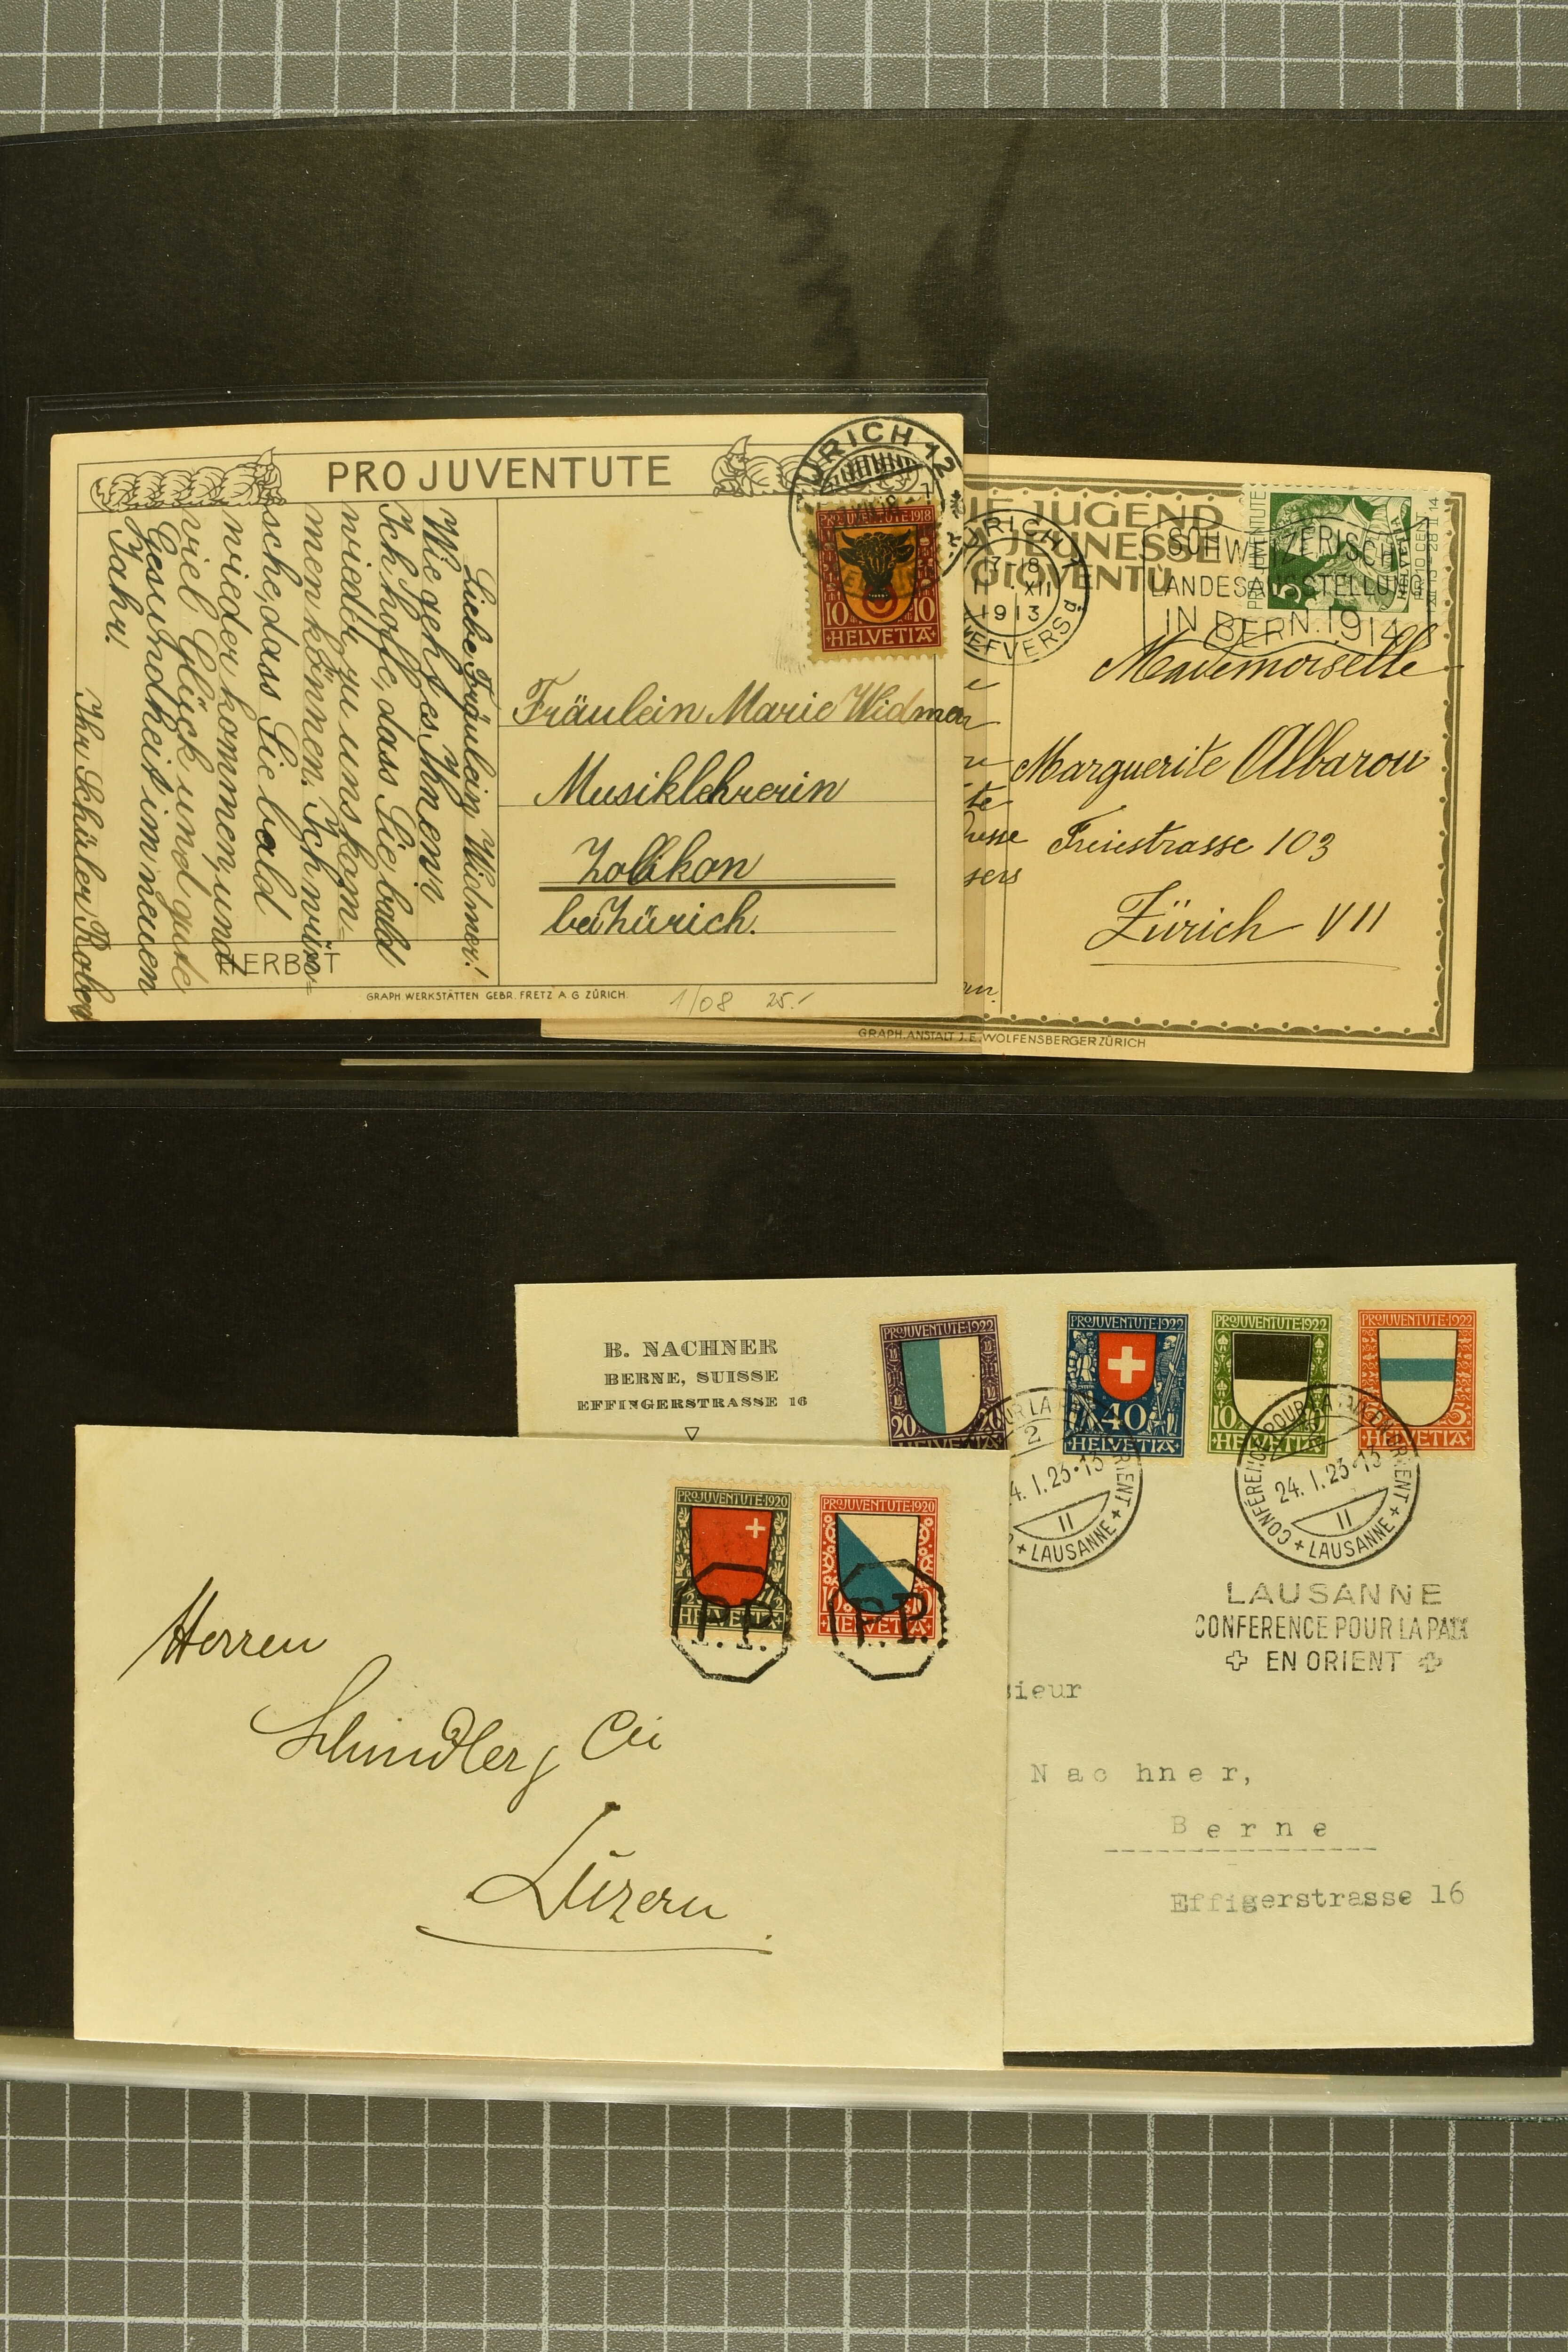 PRO JUVENTUTE
ZÜRICH 12
PRO JUVENTUTE 1918
10 10
HELVETIA
Liebe Fräulein Widmer!
Wie geht es Ihnen?
Ich hoffe, dass Sie bald
wieder zu uns kom-
men können. Ich wün-
sche, dass Sie bald
wieder kommen, und
viel Glück und gute
Gesundheit im neuen
Jahr!
Ihr Schüler Robert
Fräulein Marie Widmer
Musiklehrerin
Zollikon
bei Zürich.
HERBST
GRAPH. WERKSTÄTTEN GEBR. FRETZ A.G. ZÜRICH.
1/08 25.-
JUGEND
JEUNESSE
GIOVENTÙ
17-18
XII
1913
SCHWEIZERISCHE
LANDESAUSSTELLUNG
IN BERN 1914
5
HELVETIA
Mademoiselle
Marguerite Albarou
Freiestrasse 103
Zürich VII
GRAPH. ANSTALT J.E. WOLFENSBERGER ZÜRICH
B. NACHNER
BERNE, SUISSE
EFFINGERSTRASSE 16
PRO JUVENTUTE 1922
20 20
HELVETIA
PRO JUVENTUTE 1922
40
HELVETIA
PRO JUVENTUTE 1922
10
HELVETIA
PRO JUVENTUTE 1922
5
HELVETIA
2
4.I.23-13
II
+ LAUSANNE +
CONFÉRENCE POUR LA PAIX EN ORIENT
24.I.23-13
II
+ LAUSANNE +
LAUSANNE
CONFERENCE POUR LA PAIX
EN ORIENT
sieur
Nachner,
Berne
Effigerstrasse 16
PRO JUVENTUTE 1920
HELVETIA
P.P.
PRO JUVENTUTE 1920
10 10
HELVETIA
P.P.
Herren
Schindler & Cie
Luzern